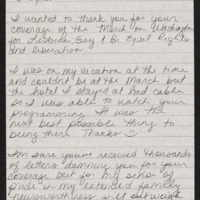 I wanted to thank you for your
coverage of the March on Washington
for Lesbian, Gay & Bi Equal Rights
and Liberation
I was on my vacation at the time
and couldn't be at the March but
the hotel I stayed at had cable
so I was able to watch your
programming. It was the
next best possible thing to
being there. Thanks
I'm sure you received thousands
of letters damning you for your
coverage but for my sense of
pride in my extended family
newsworthiness will outweigh